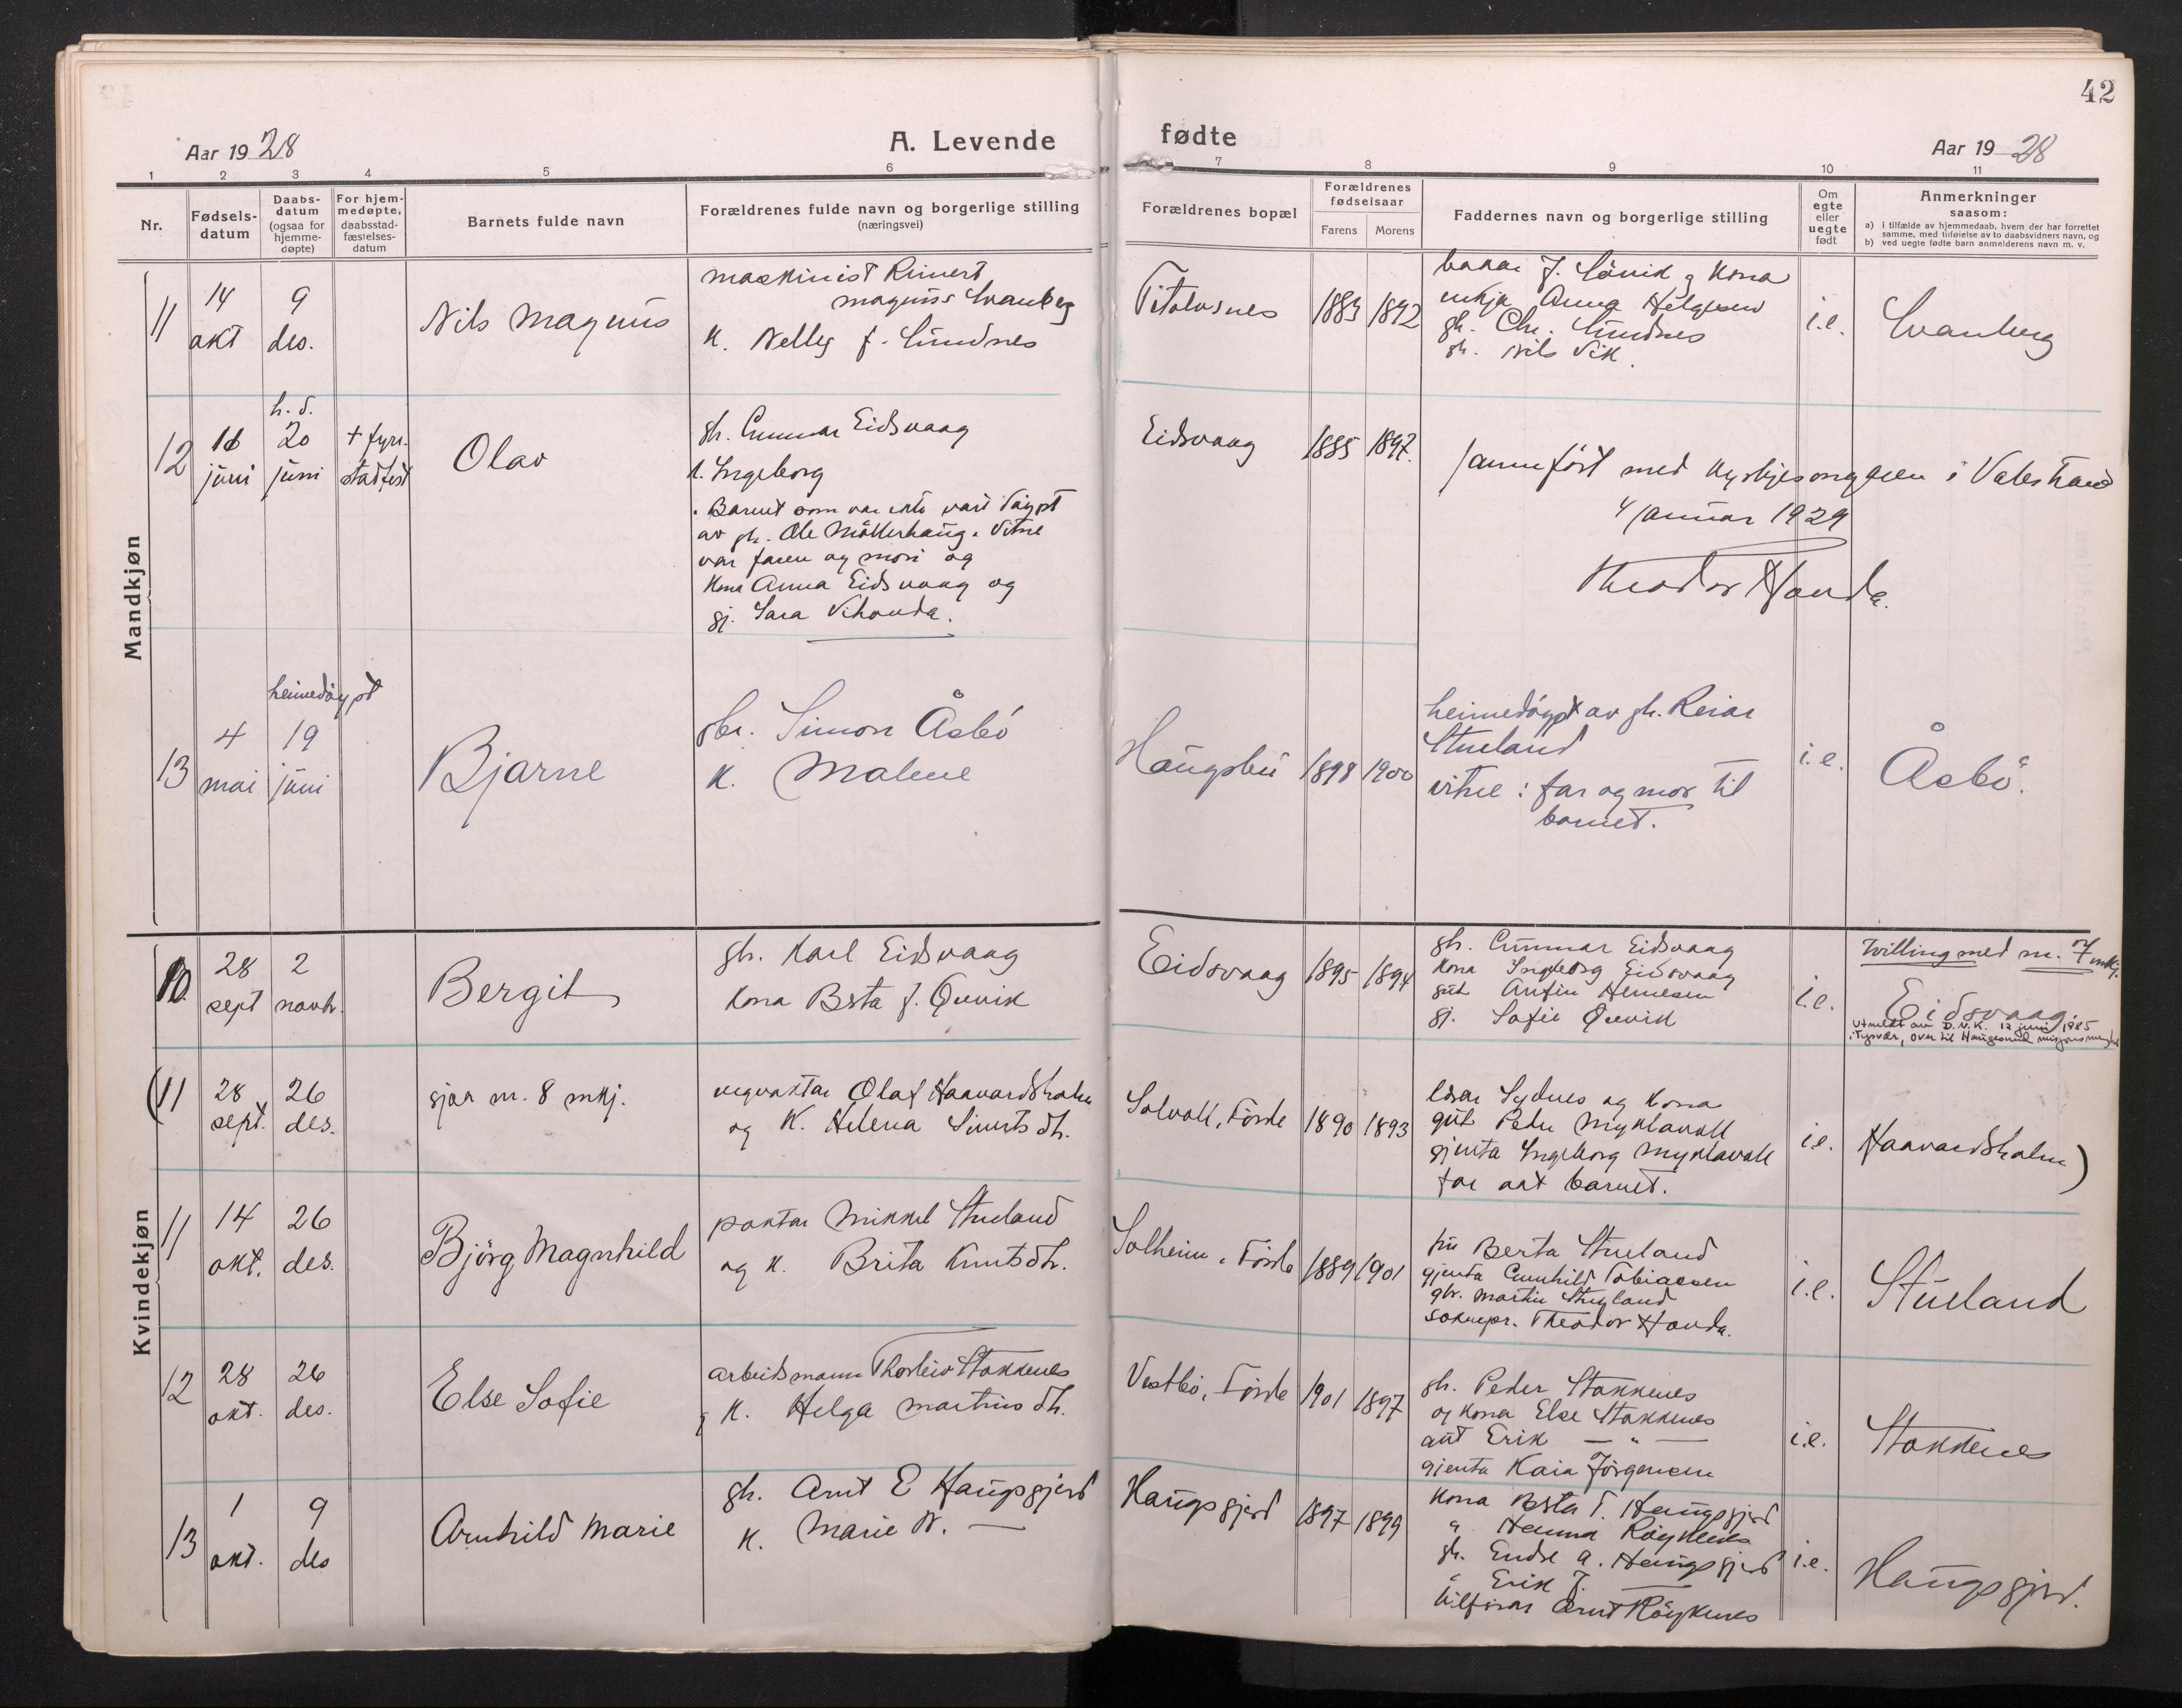 42
Aar 1928
A. Levende
fødte
Aar 1928
1 2 3 4 5 6 7 8 9 10 11
Nr.
Fødsels-
datum
Daabs-
datum
(ogsaa for
hjemme-
døpte)
For hjem-
medøpte,
daabsstad-
fæstelses-
datum
Barnets fulde navn
Forældrenes fulde navn og borgerlige stilling
(næringsvei)
Forældrenes bopæl
Forældrenes
fødselsaar
Farens Morens
Faddernes navn og borgerlige stilling
Om
egte
eller
uegte
født
Anmerkninger
saasom:
a) i tilfælde av hjemmedaab, hvem der har forrettet
samme, med tilføielse av to daabsvidners navn, og
b) ved uegte fødte barn anmelderens navn m. v.
Mandkjøn
11
14
okt
9
des.
Nils Magnus
maskinist Reinert
Magnus Svanberg
K. Nelly f. Sundnes
Titalvsnes
1883 1892
J. Sövik og kona
enkja Anna Helgesen
gb. Chr. Sundnes
gb. Nils Vik.
i.e.
Svanberg
12
16
juni
h. d.
20
juni
+ fyrr
stadfest
Olav
gb. Gunnar Eidsvaag
k. Ingeborg
Barnet som var vart döypt
av gb. Ole Möllerhaug. Vitne
var faren og mori og
kona Anna Eidsvaag og
gj. Sara Vihovda.
Eidsvaag
1885 1897.
Jamnfört med kyrkjesongaren i Valestrand
4 Januar 1929
Theodor Hovda.
13
4
mai
heimedöypt
19
juni
Bjarne
gbr. Simon Åsbö
K. Malene
Haugsbu
1898 1900
heimedöypt av gb. Reiar
Stueland
vitne: far og mor til
barnet.
i.e.
Åsbö.
Kvindekjøn
10.
28
sept
2
novbr.
Bergit
gb. Karl Eidsvaag
Kona Berta f. Økevik
Eidsvaag
1895 1894
gb. Gunnar Eidsvaag
Kona Ingeborg Eidsvaag
gut Arnfin
gj. Sofie
i.e.
Tvilling med nr. 7 mkj.
Eidsvaag.
Utmeldt av D.N.K. 12 juni 1985
i Tysvær, over til Haugesund misjonsmenighet
(11
28
sept.
26
des.
sjaa nr. 8 mkj.
vegvaktar Olaf Haavardsholm
og K. Helena Sivertsdtr.
Solvoll, Förde
1890 1893
Lydnes og kona
gut Peder Myklavoll
gjenta Ingeborg Myklavoll
far aat barnet.
i.e.
Haavardsholm)
11
14
okt.
26
des.
Björg Magnhild
poktar Mikkel Stueland
og K. Brita Knutsdtr.
Solheim, Förde
1889 1901
fru Berta Stueland
gjenta Gunhild Tobiassen
gbr. Martin Stueland
soknepr. Theodor Hovda.
i.e.
Stueland
12
28
okt.
26
des.
Else Sofie
arbeidsmann Thorleiv Stokkenes
og K. Helga Martinsdtr.
Vestbö, Förde
1901 1897
gb. Peder Stokkenes
og kona Else Stokkenes
gut Erik — " —
gjenta Kaia Jörgensen
i.e.
Stokkenes
13
1
okt.
9
des
Arnhild Marie
gb. Arnt E Haugsgjerd
K. Marie N. —
Haugsgjerd
1897 1899
Kona Berta T. Haugsgjerd
" Hanna Röyknes
gb. Endre A. Haugsgjerd
" Erik J. —
Arnt Röyknes
i.e.
Haugsgjerd.